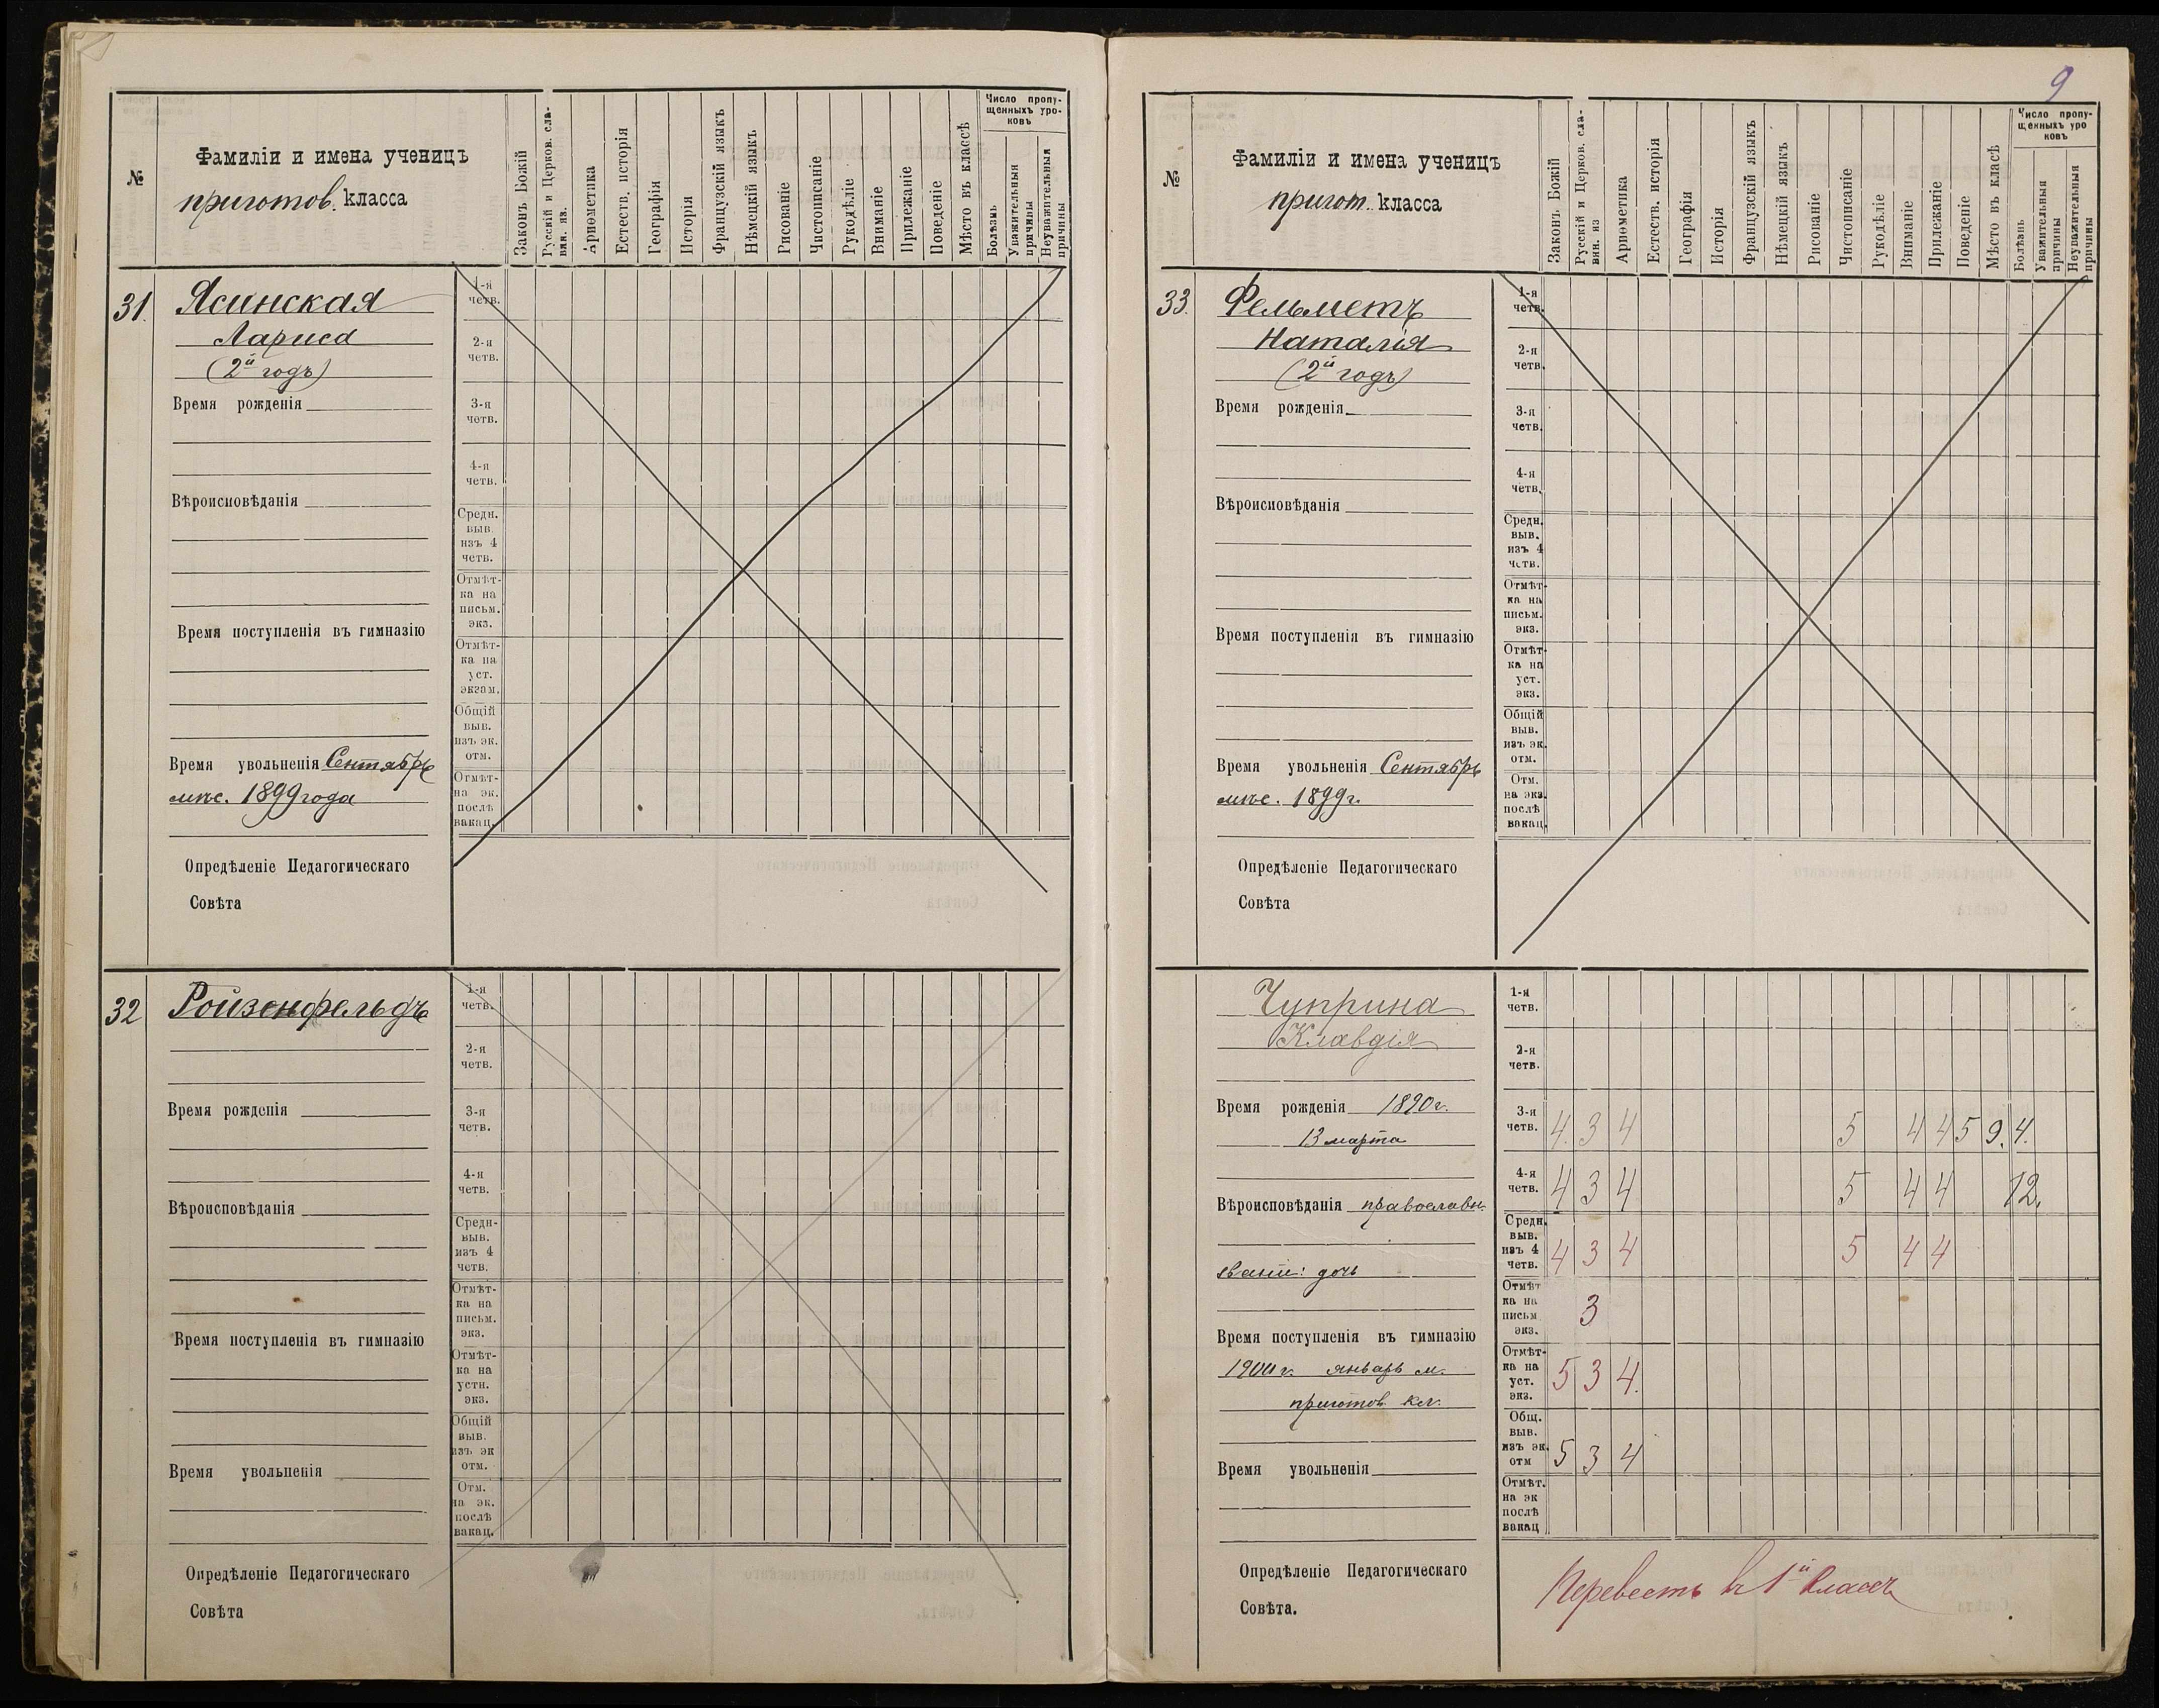 9
№
Фамиліи и имена ученицъ
приготов. класса
Законъ Божій
Русскій и Церков. сла-
вян. яз.
Ариѳметика
Естеств. исторія
Географія
Исторія
Французскій языкъ
Нѣмецкій языкъ
Рисованіе
Чистописаніе
Рукодѣліе
Вниманіе
Прилежаніе
Поведеніе
Мѣсто въ классѣ
Число пропу-
щенныхъ уро-
ковъ
Болѣзнь
Уважительныя
причины
Неуважительныя
причины
31.
Ясинская
Лариса
(2й годъ)
Время рожденія
Вѣроисповѣданія
Время поступленія въ гимназію
Время увольненія Сентябрь
мѣс. 1899 года
Опредѣленіе Педагогическаго
Совѣта
1-я
четв.
2-я
четв.
3-я
четв.
4-я
четв.
Средн.
выв.
изъ 4
четв.
Отмѣт-
ка на
письм.
экз.
Отмѣт-
ка на
уст.
экзам.
Общій
выв.
изъ эк.
отм.
Отмѣт-
на эк.
послѣ
вакац.
32
Ройзенфельдъ
Время рожденія
Вѣроисповѣданія
Время поступленія въ гимназію
Время увольненія
Опредѣленіе Педагогическаго
Совѣта
1-я
четв.
2-я
четв.
3-я
четв.
4-я
четв.
Средн-
выв.
изъ 4
четв.
Отмѣт-
ка на
письм.
экз.
Отмѣт-
ка на
устн.
экз.
Общій
выв.
изъ эк
отм.
Отм.
на эк.
послѣ
вакац.
№
Фамиліи и имена ученицъ
пригот. класса
Законъ Божій
Русскій и Церков. сла-
вян. из
Ариѳметика
Естеств. исторія
Географія
Исторія
Французскій языкъ
Нѣмецкій языкъ
Рисованіе
Чистописаніе
Рукодѣліе
Вниманіе
Прилежаніе
Поведеніе
Мѣсто въ класѣ
Число пропу-
щенныхъ уро
ковъ
Болѣзнь
Уважительныя
причины
Неуважительныя
причины
33.
Фельметъ
Наталія
(2й годъ)
Время рожденія
Вѣроисповѣданія
Время поступленія въ гимназію
Время увольненія Сентябрь
мѣс. 1899 г.
Опредѣленіе Педагогическаго
Совѣта
1-я
четв.
2-я
четв.
3-я
четв.
4-я
четв.
Средн.
выв.
изъ 4
четв.
Отмѣт-
ка на
письм.
экз.
Отмѣт-
ка на
уст.
экз.
Общій
выв.
изъ эк.
отм.
Отм.
на экз.
послѣ
вакац.
Чуприна
Клавдія
Время рожденія 1890 г.
13 марта
Вѣроисповѣданія православн.
званіе: дочь
Время поступленія въ гимназію
1900 г. январь м.
приготов. кл.
Время увольненія
Опредѣленіе Педагогическаго
Совѣта.
1-я
четв.
2-я
четв.
3-я
четв. 4. 3 4 5 4 4 5 9. 4.
4-я
четв. 4 3 4 5 4 4 12.
Средн.
выв.
изъ 4
четв. 4 3 4 5 4 4
Отмѣт
ка на
письм
экз. 3
Отмѣт-
ка на
уст.
экз. 5 3 4.
Общ.
выв.
изъ эк.
отм 5 3 4
Отмѣт.
на эк
послѣ
вакац
Перевесть въ 1й классъ